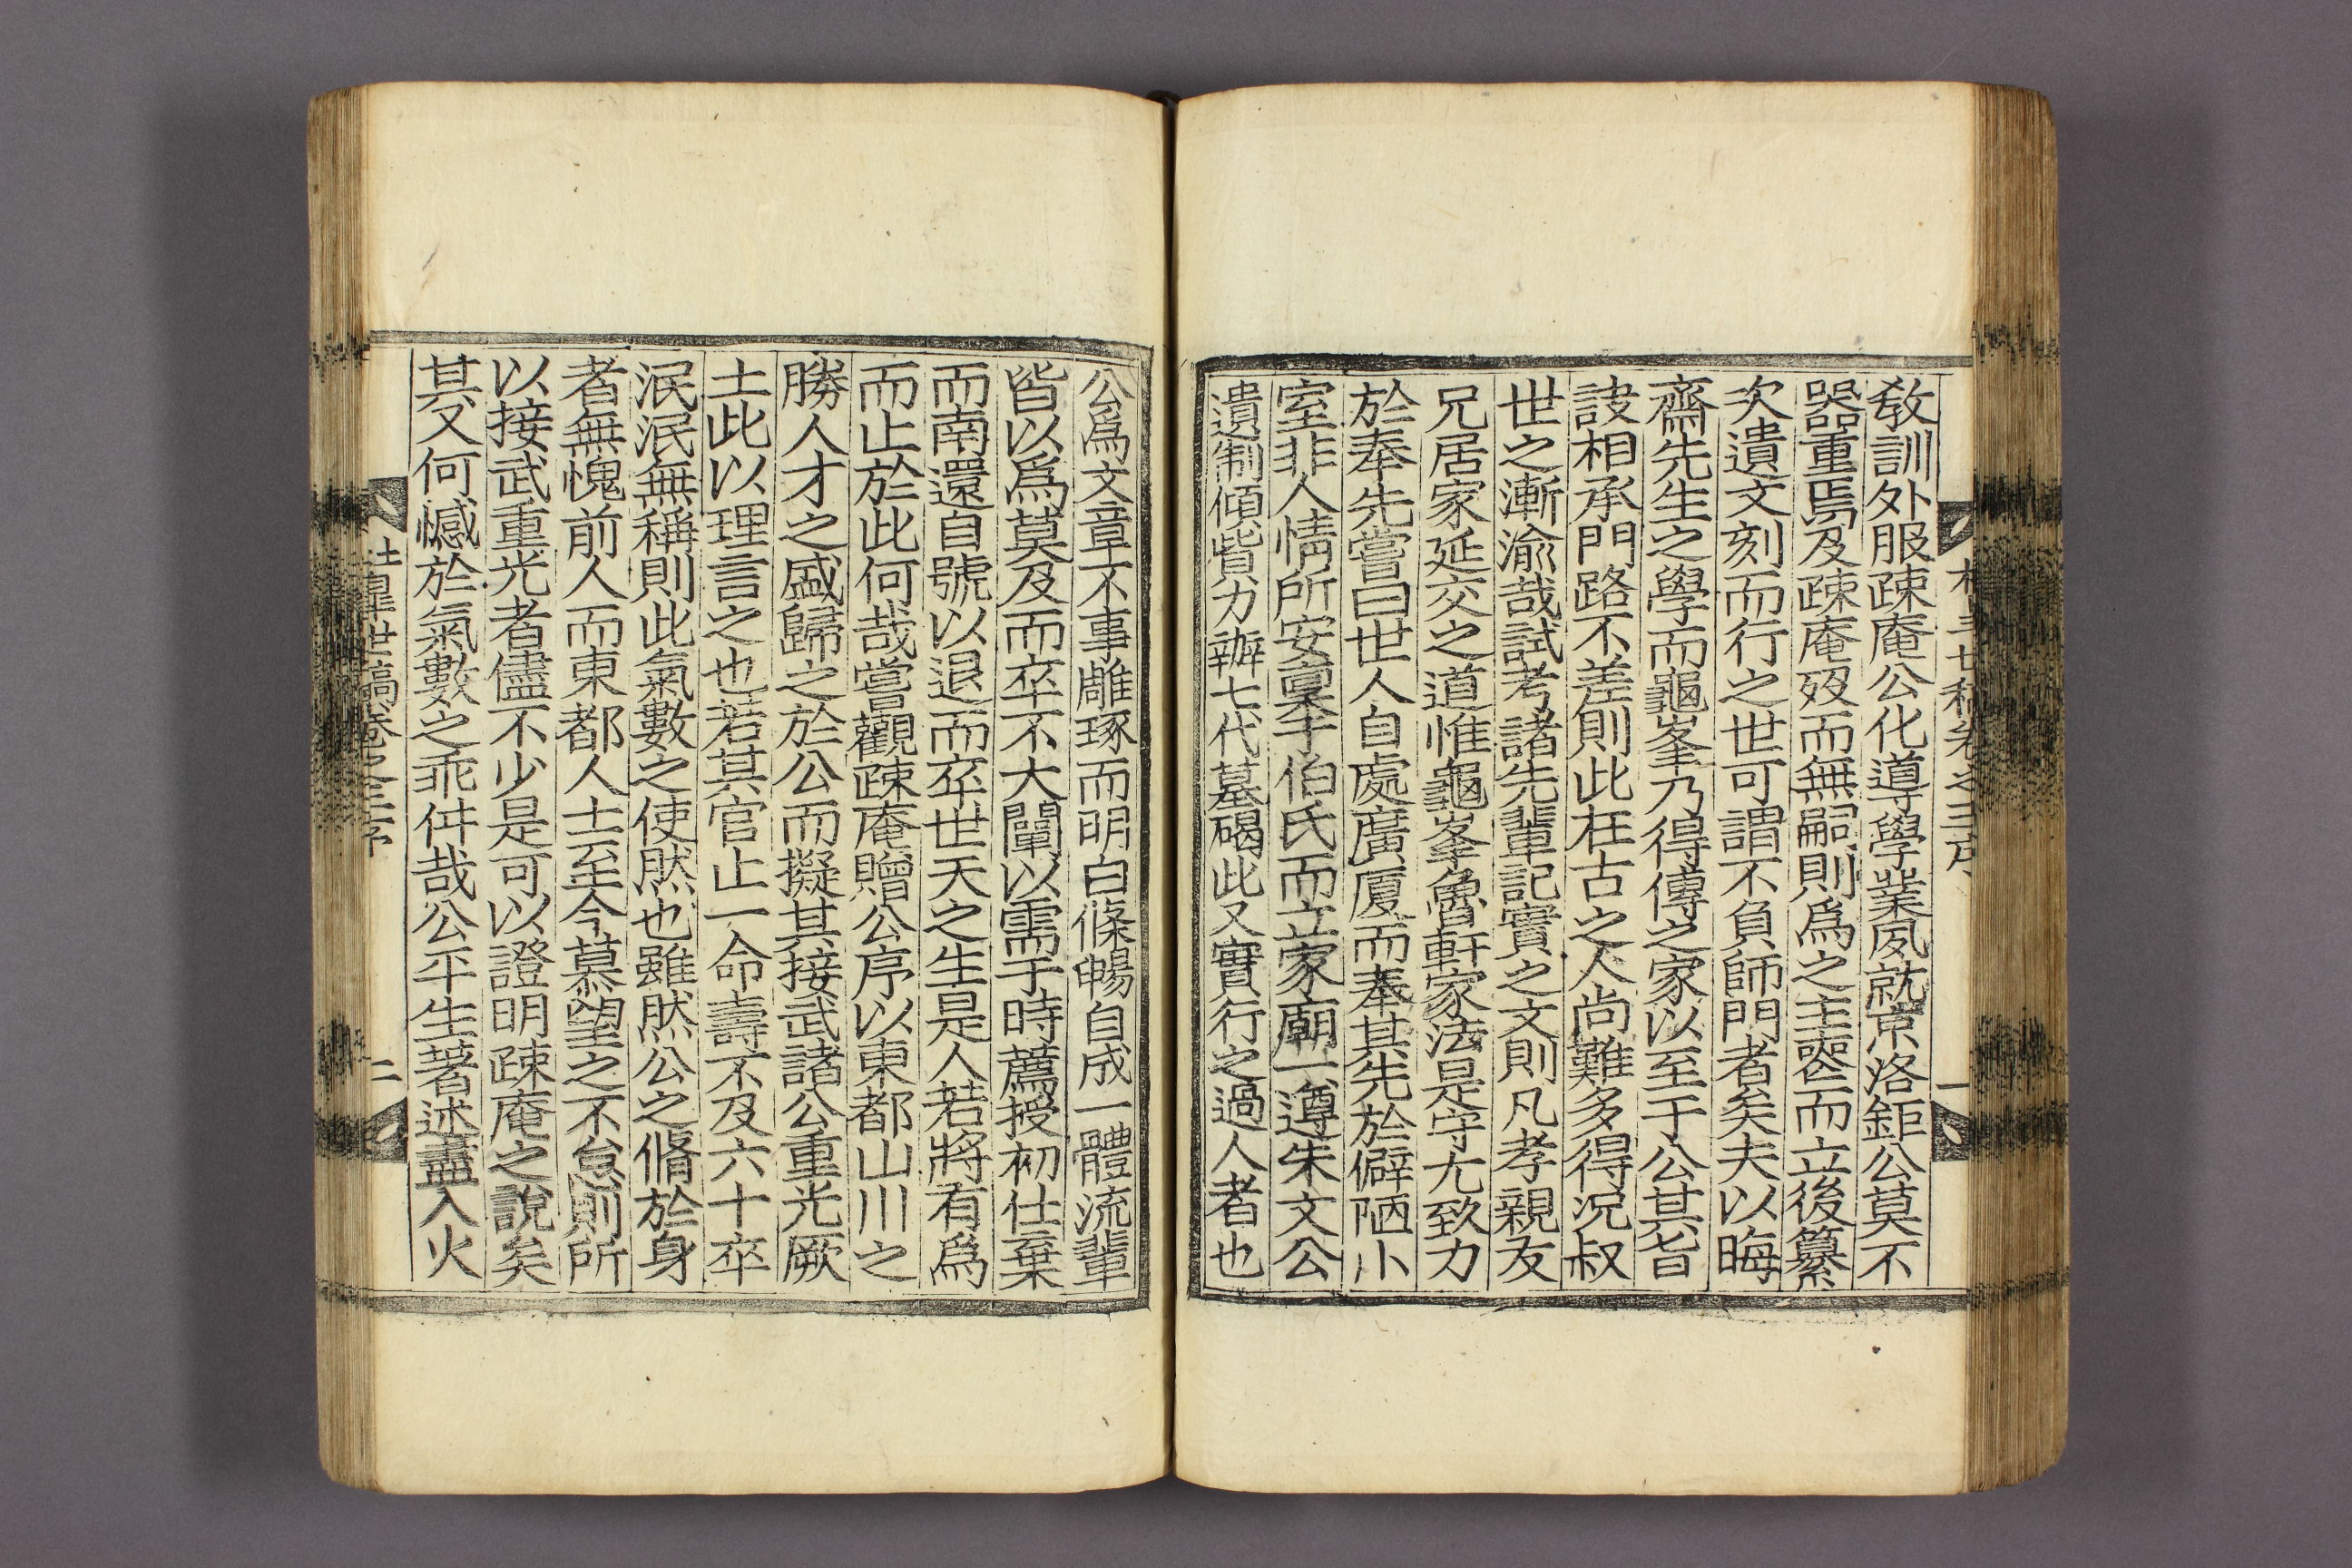 敎訓外服疎庵公化導學業夙就京洛鉅公莫不
器重焉及疎庵歿而無嗣則爲之主喪而立後纂
次遺文刻而行之世可謂不負師門者矣夫以晦
齋先生之學而龜峯乃得傳之家以至于公其旨
訣相承門路不差則此在古之人尙難多得況叔
世之漸渝哉試考諸先輩記實之文則凡孝親友
兄居家延交之道惟龜峯魯軒家法是守尤致力
於奉先嘗曰世人自處廣厦而奉其先於僻陋小
室非人情所安稟于伯氏而立家廟一遵朱文公
遺制傾貲力辦七代墓碣此又實行之過人者也
公爲文章不事雕琢而明白條暢自成一體流輩
皆以爲莫及而卒不大闡以需于時薦授初仕棄
而南還自號以退而卒世天之生是人若將有爲
而止於此何哉嘗觀疎庵贈公序以東都山川之
勝人才之盛歸之於公而擬其接武諸公重光厥
土此以理言之也若其官止一命壽不及六十卒
泯泯無稱則此氣數之使然也雖然公之脩於身
者無愧前人而東都人士至今慕望之不怠則所
以接武重光者儘不少是可以證明疎庵之說矣
其又何憾於氣數之乖舛哉公平生著述盡入火
世稿卷之三序
二